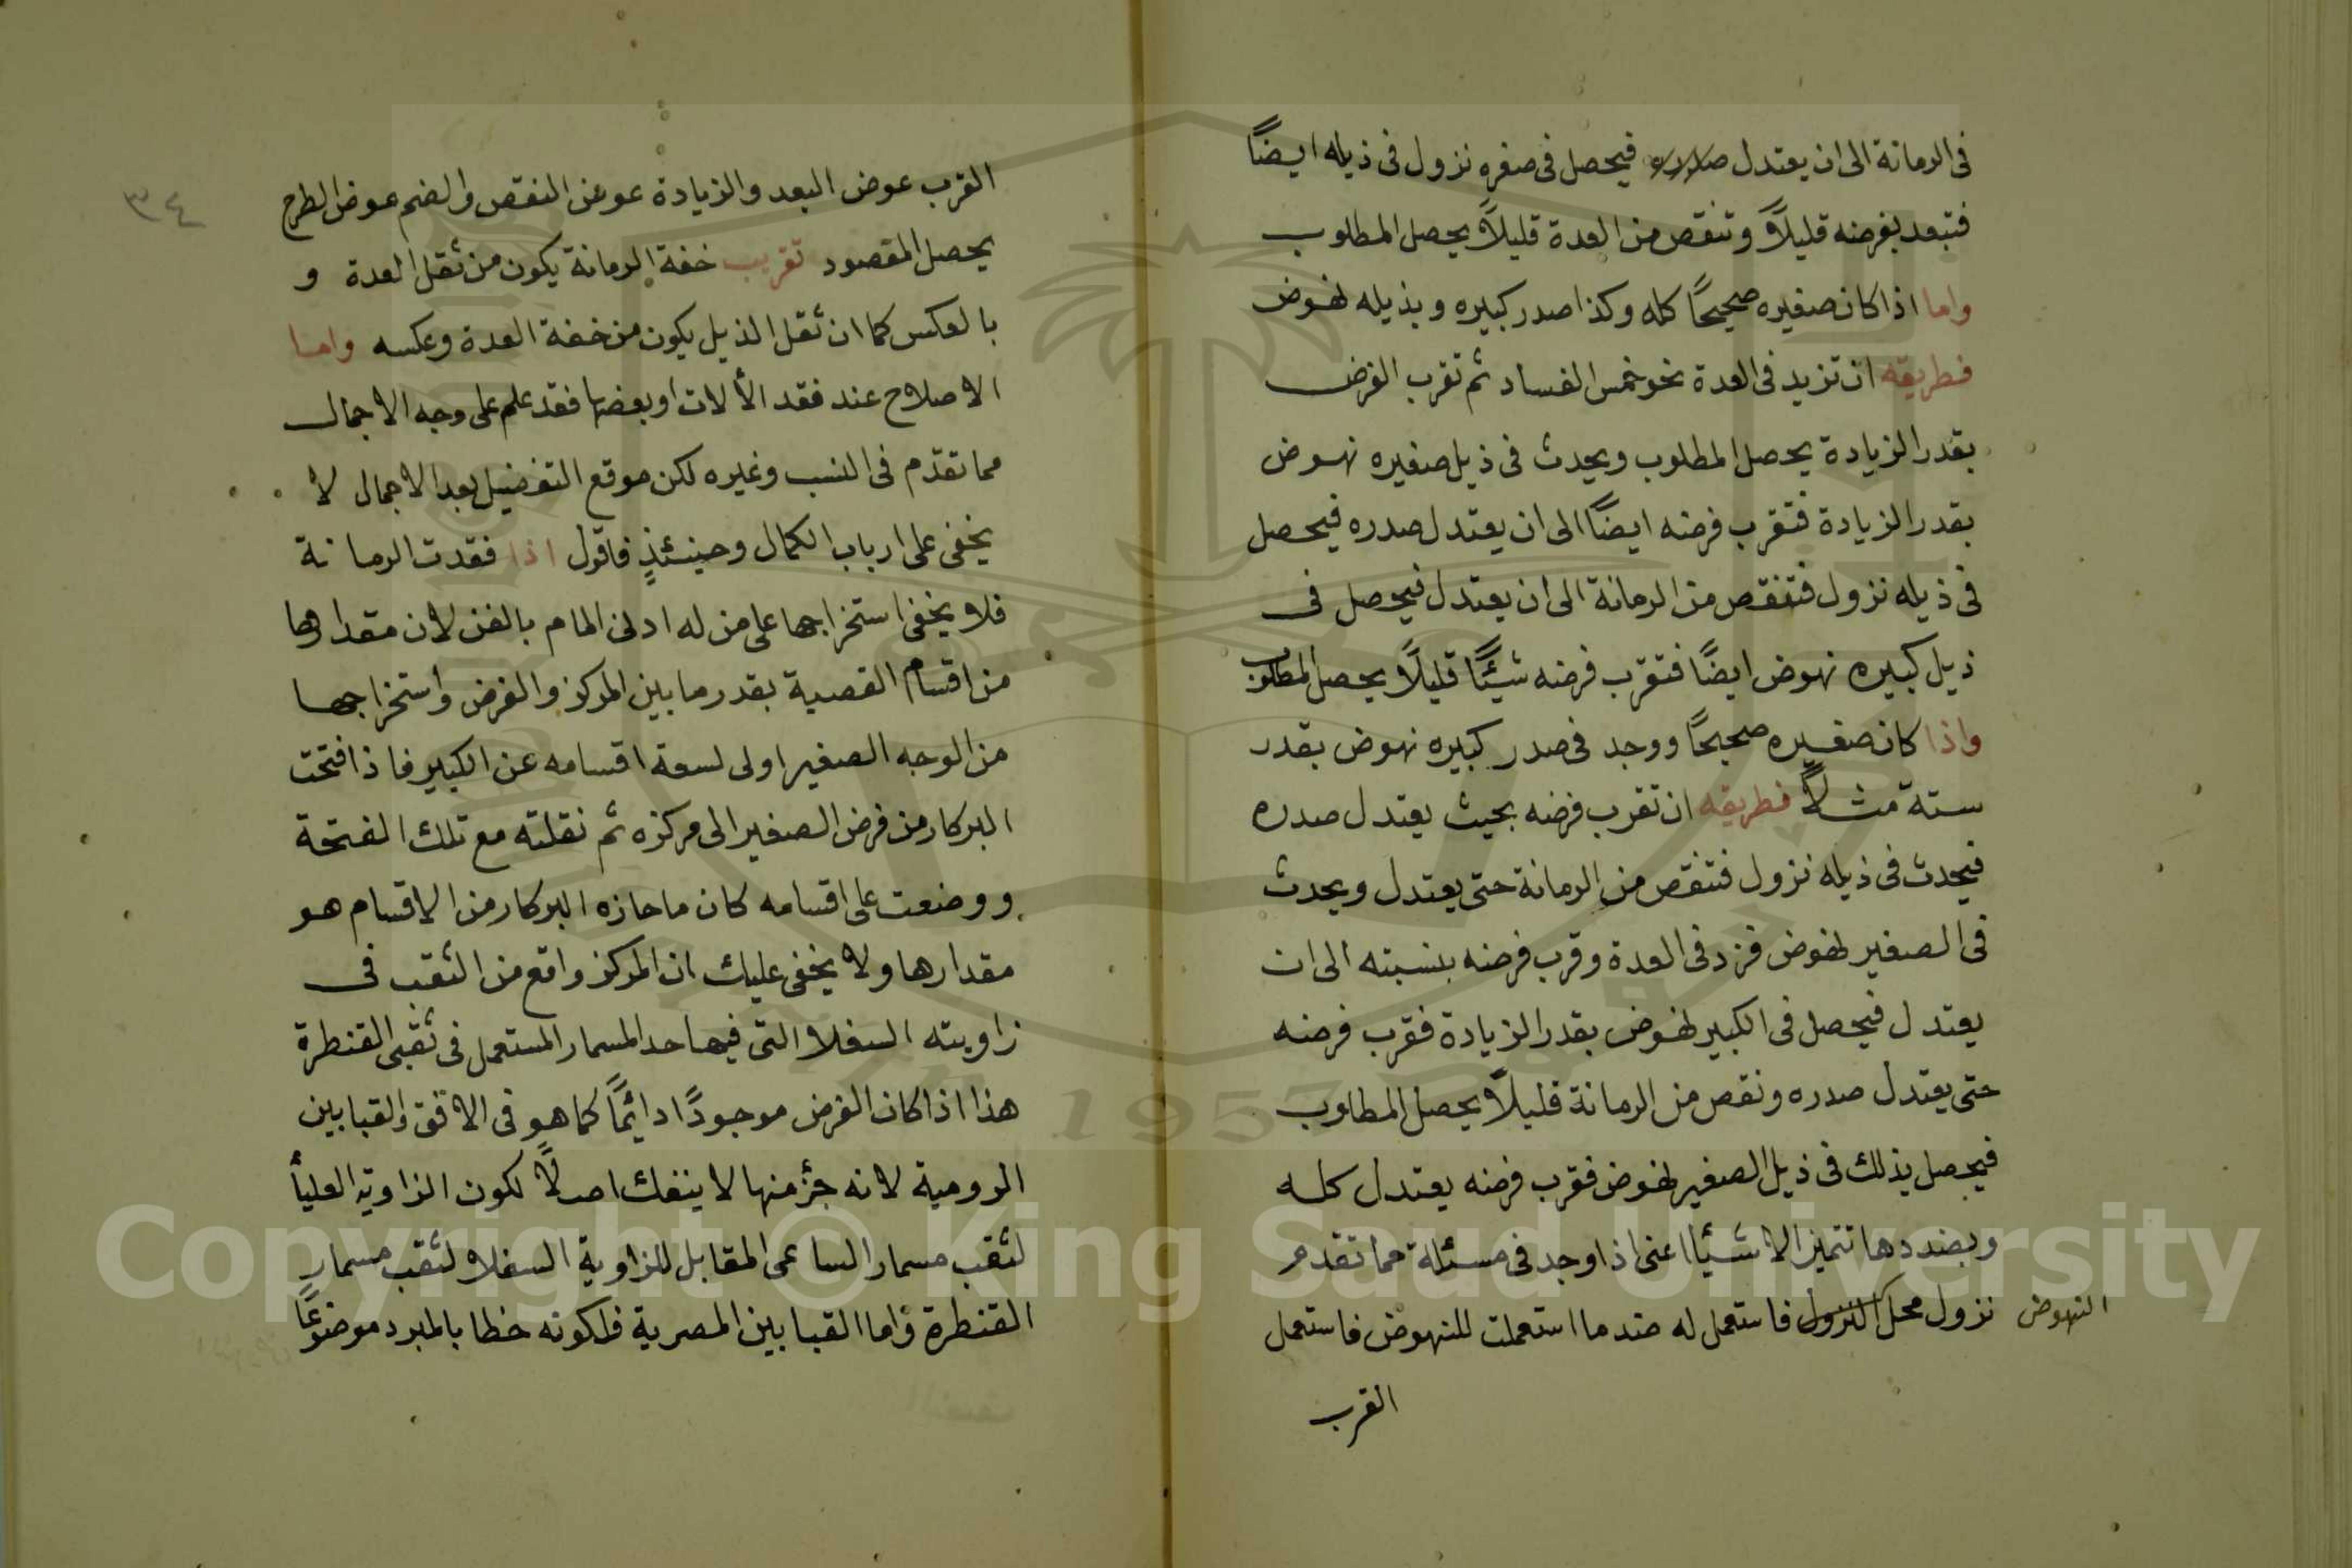 فى الرمانة الى ان يعتدل فيحصل فى صغره نزول فى ذيله ايضًا
فتبعد بفرضه قليلاً وتنقص من العدة قليلاً يحصل المطلوب
واما اذا كان صغيره صحيحًا كله وكذا صدر كبيره وبذيله نهوض
فطريقه ان تزيد فى العدة نحو خمس الفساد ثم تقرب الفرض
بقدر الزيادة يحصل المطلوب ويحدث فى ذيل صغيره نهوض
بقدر الزيادة فتقرب فرضه ايضًا الى ان يعتدل صدره فيحصل
فى ذيله نزول فتنقص من الرمانة الى ان يعتدل فيحصل فى
ذيل كبيره نهوض ايضًا فتقرب فرضه شيئًا قليلاً يحصل المطلوب
واذا كان صغيره صحيحًا ووجد فى صدر كبيره نهوض بقدر
ستة مثلاً فطريقه ان تقرب فرضه بحيث يعتدل صدره
فيحدث فى ذيله نزول فتنقص من الرمانة حتى يعتدل ويحدث
فى الصغير نهوض فزد فى العدة وقرب فرضه بنسبته الى ان
يعتدل فيحصل فى الكبير نهوض بقدر الزيادة فقرب فرضه
حتى يعتدل صدره ونقص من الرمانة قليلاً يحصل المطلوب
فيحصل بذلك فى ذيل الصغير نهوض فقرب فرضه يعتدل كله
وبضددها تتميز الاشيئا اعنى اذا وجد فى مسئلة مما تقدم
نزول محل النزول فاستعمل له ضد ما استعملت للنهوض فاستعمل
النهوض
القرب
٣٤
القرب عوض البعد والزيادة عوض النقص والضم عوض الطرح
يحصل المقصود تقريب خفة الرمانة يكون من ثقل العدة و
بالعكس كما ان ثقل الذيل يكون من خفة العدة وعكسه واما
الاصلاح عند فقد الألات او بعضها فقد علم على وجه الاجمال
مما تقدّم فى النسب وغيره لكن موقع التفضيل بعد الاجمال لا
يخفى على ارباب الكمال وحينئذٍ فاقول اذا فقدت الرمانة
فلا يخفى استخراجها على من له ادنى المام بالفن لان مقدارها
من اقسام القصبة بقدر ما بين المركز والفرض واستخراجها
من الوجه الصغير اولى لسعة اقسامه عن الكبير فاذا فتحت
البركار من فرض الصغير الى مركزه ثم نقلته مع تلك الفتحة
ووضعت على اقسامه كان ما حازه البركار من الاقسام هو
مقدارها ولا يخفى عليك ان المركز واقع من الثقب فى
زاويته السفلا التى فيها حد المسمار المستعمل فى ثقبى القنطرة
هذا اذا كان الفرض موجودًا دائمًا كما هو فى الافق والقبابين
الرومية لانه جزؤ منها لا ينفك اصلاً لكون الزاوية العليأ
لثقب مسمار الساعى المقابل للزاوية السفلا لثقب مسمار
القنطرة واما القبابين المصرية فلكونه خطا بالمبرد موضوعًا
Copyright © King Saud University
1957